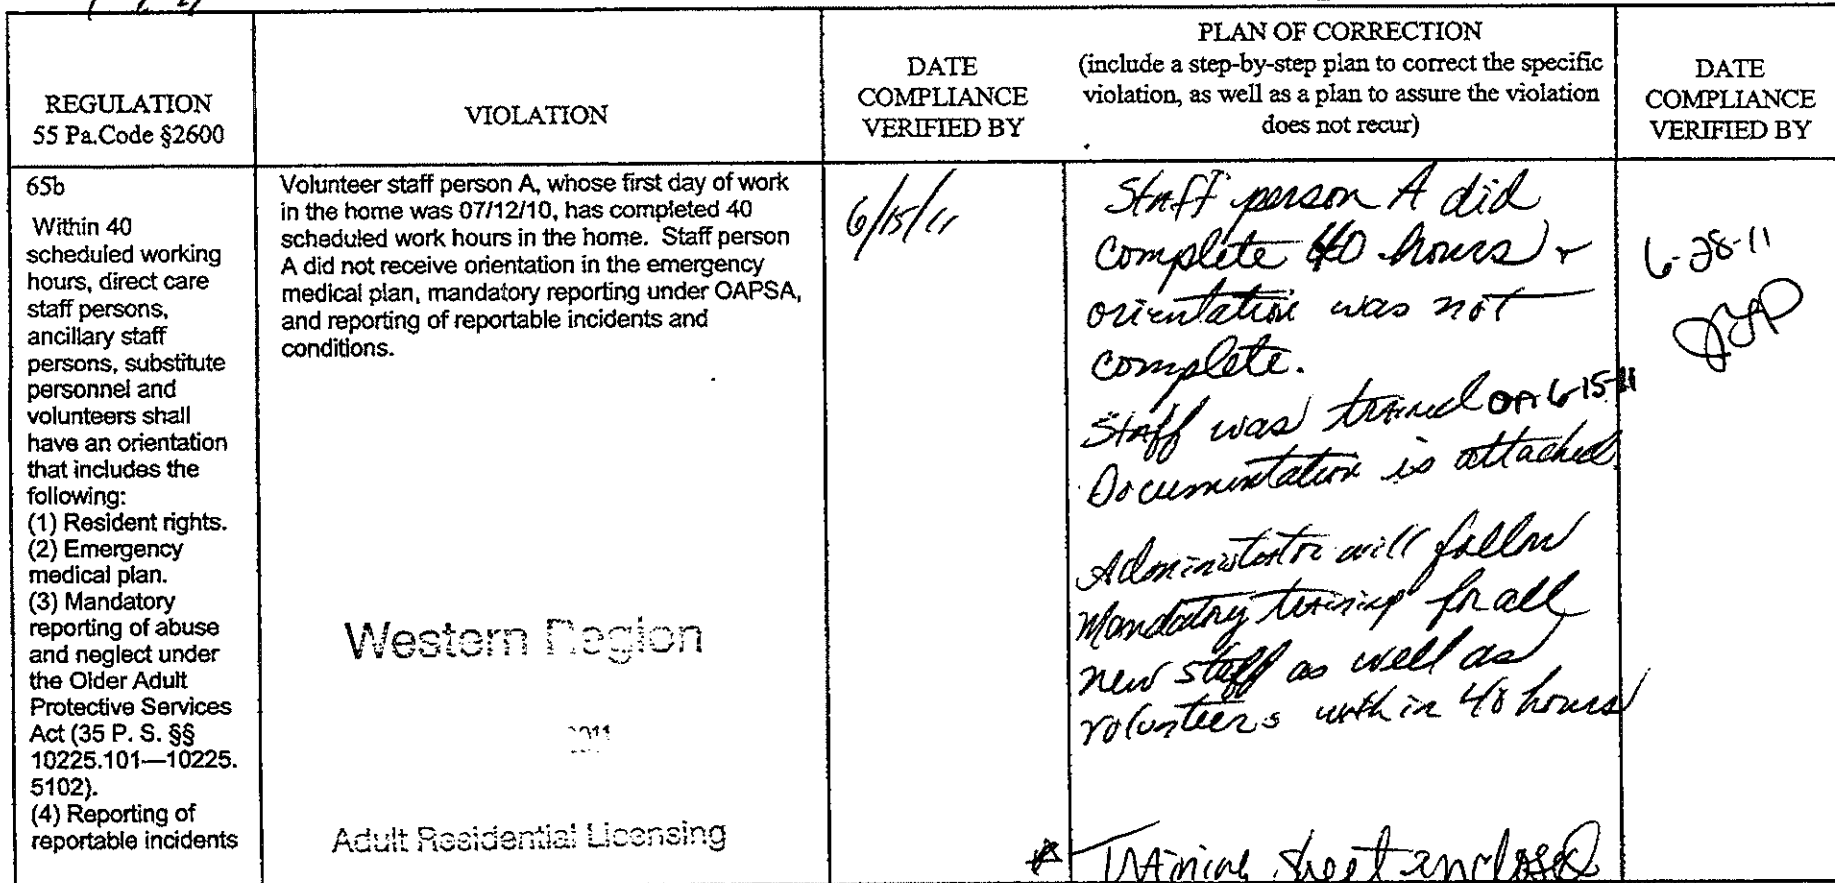 REGULATION
55 Pa.Code §2600
VIOLATION
DATE
COMPLIANCE
VERIFIED BY
PLAN OF CORRECTION
(include a step-by-step plan to correct the specific
violation, as well as a plan to assure the violation
does not recur)
DATE
COMPLIANCE
VERIFIED BY
65b
Within 40
scheduled working
hours, direct care
staff persons,
ancillary staff
persons, substitute
personnel and
volunteers shall
have an orientation
that includes the
following:
(1) Resident rights.
(2) Emergency
medical plan.
(3) Mandatory
reporting of abuse
and neglect under
the Older Adult
Protective Services
Act (35 P. S. §§
10225.101—10225.
5102).
(4) Reporting of
reportable incidents
Volunteer staff person A, whose first day of work
in the home was 07/12/10, has completed 40
scheduled work hours in the home. Staff person
A did not receive orientation in the emergency
medical plan, mandatory reporting under OAPSA,
and reporting of reportable incidents and
conditions.
Western Region
2011
Adult Residential Licensing
6/15/11
Staff person A did
complete 40 hours +
orientation was not
complete.
Staff was trained on 6-15-11
Documentation is attached
Administrator will follow
Mandatory training for all
new staff as well as
volunteers within 40 hours
* Training sheet enclosed
6-28-11